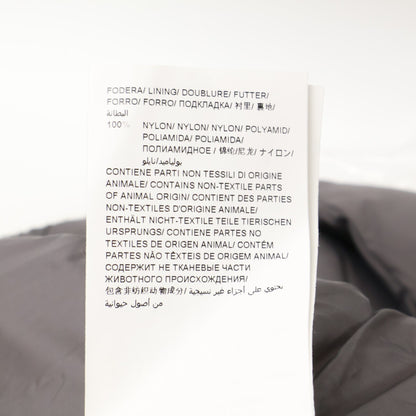 FODERA/ LINING/ DOUBLURE/ FUTTER/
FORRO/ FORRO/ ПОДКЛАДКА/ 衬里/ 裏地/
البطانة
100% NYLON/ NYLON/ NYLON/ POLYAMID/
POLIAMIDA/ POLIAMIDA/
ПОЛИАМИДНОЕ / 锦纶/尼龙/ ナイロン/
بولياميد/نايلو
CONTIENE PARTI NON TESSILI DI ORIGINE
ANIMALE/ CONTAINS NON-TEXTILE PARTS
OF ANIMAL ORIGIN/ CONTIENT DES PARTIES
NON-TEXTILES D'ORIGINE ANIMALE/
ENTHÄLT NICHT-TEXTILE TEILE TIERISCHEN
URSPRUNGS/ CONTIENE PARTES NO
TEXTILES DE ORIGEN ANIMAL/ CONTÉM
PARTES NÃO TÊXTEIS DE ORIGEM ANIMAL/
СОДЕРЖИТ НЕ ТКАНЕВЫЕ ЧАСТИ
ЖИВОТНОГО ПРОИСХОЖДЕНИЯ/
包含非纺织动物成分/ يحتوي على أجزاء غير نسيجية/
من أصول حيوانية